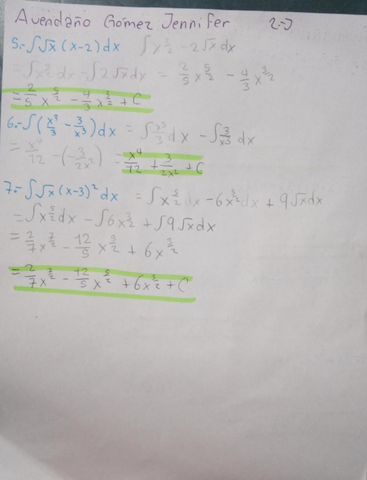 Avendaño Gómez Jennifer 2-J
5.- ∫√x (x-2) dx ∫x^3/2 - 2√x dx
= ∫x^3/2 dx - ∫2√x dx = 2/5 x^5/2 - 4/3 x^3/2
= 2/5 x^5/2 - 4/3 x^3/2 + C
6.- ∫(x³/3 - 3/x³) dx = ∫x³/3 dx - ∫3/x³ dx
= x⁴/12 - (-3/2x²) = x⁴/12 + 3/2x² + C
7.- ∫√x (x-3)² dx = ∫x^5/2 dx - 6x^3/2 dx + 9√x dx
= ∫x^5/2 dx - ∫6x^3/2 + ∫9√x dx
= 2/7 x^7/2 - 12/5 x^5/2 + 6x^3/2
= 2/7 x^7/2 - 12/5 x^5/2 + 6x^3/2 + C